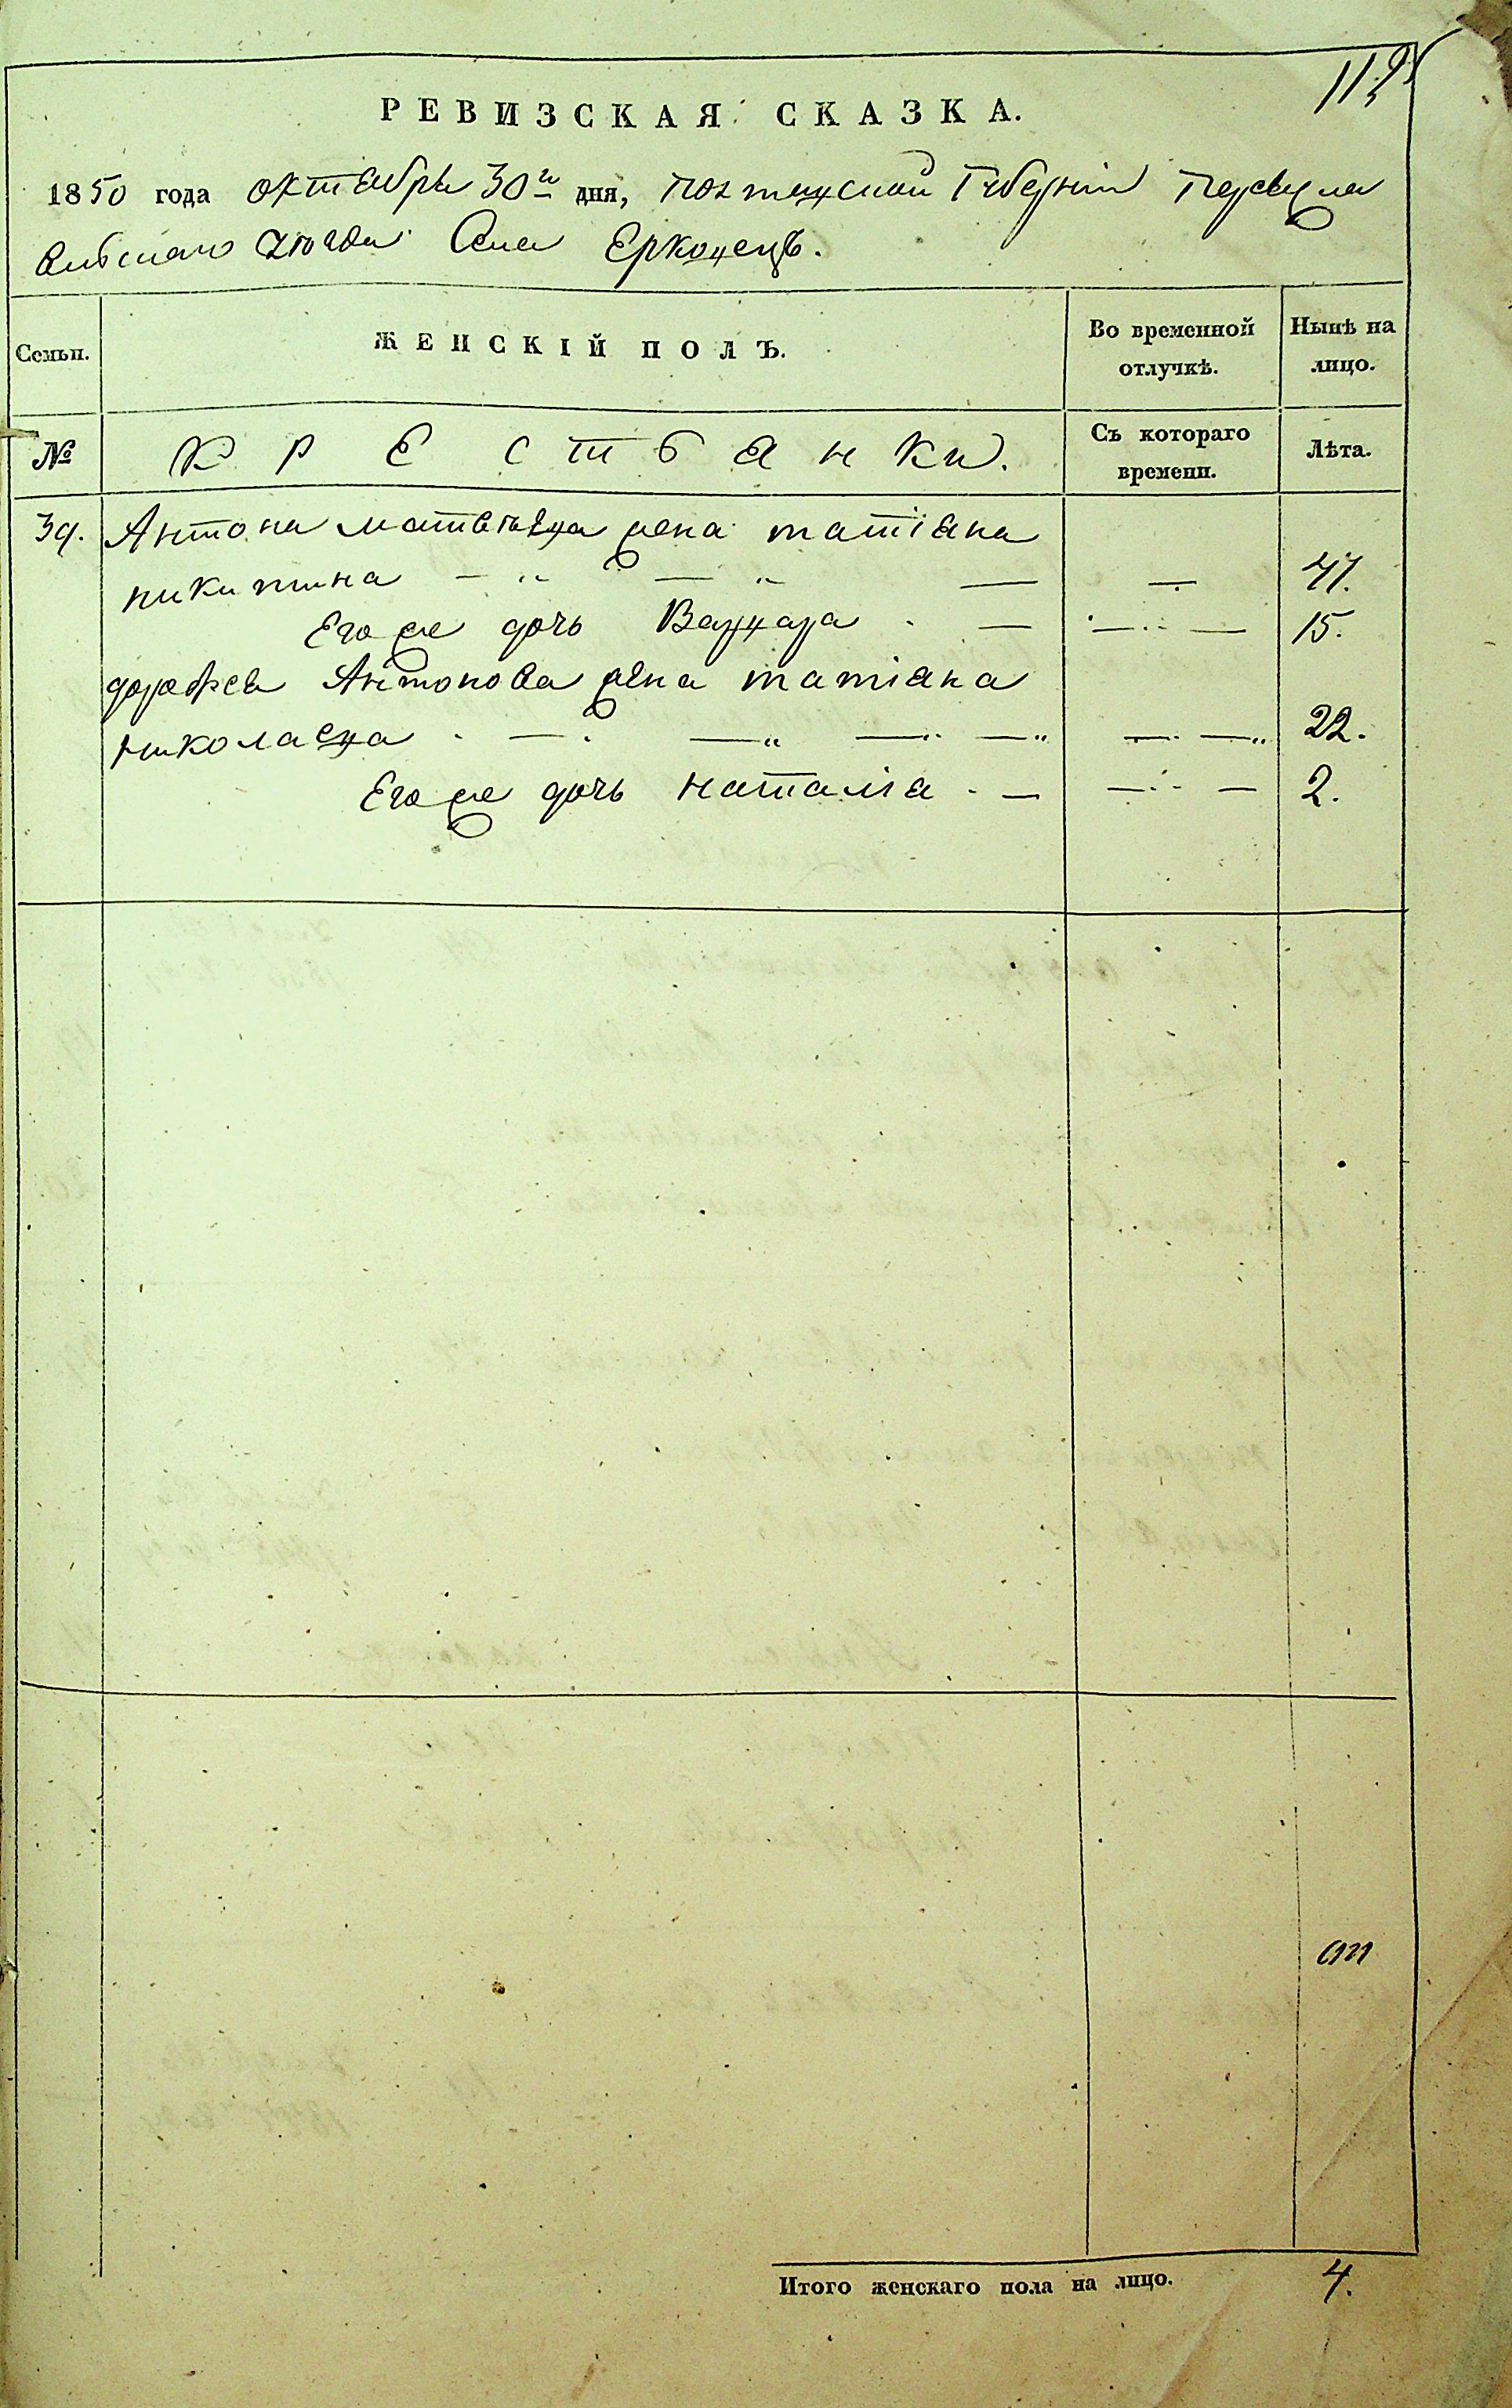 112
РЕВИЗСКАЯ СКАЗКА.
1850 года октября 30го дня, Полтавской Губернии Переясла
вского уезда Села Ерковецъ.
Семьи.
ЖЕНСКІЙ ПОЛЪ.
Во временной отлучкѣ.
Нынѣ на лицо.
№
Крестьянки.
Съ котораго времени.
Лѣта.
39. Антона матвѣева жена татіана
никитина — — — — 47.
Его же дочь Варвара — — 15.
дорофея Антонова жена татіана
николаева — — — — 22.
Его же дочь наталіа — — 2.
Итого женскаго пола на лицо. 4.